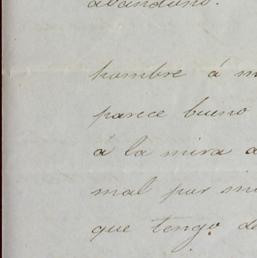 abandono.
hombre á m
parece bueno
á la mira d
mal por mi
que tengo de